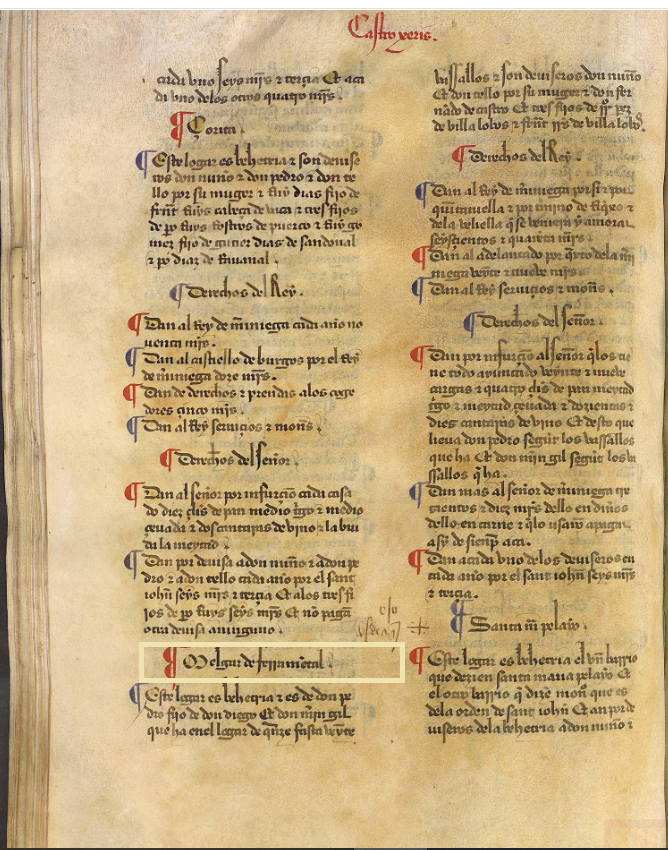 Castro xeris.
cada vno seys mrs z terçia Et aca
da vno delos otros quatro mrs.
Çorita.
Este logar es behetria z son deuise
ros don nuño z don pedro z don te
llo por su muger z Ruy dias fijo de
z po diaz de
Derechos del Rey.
Dan al Rey de miniega cada año no
uenta mrs.
Dan al castiello de burgos por el Rey
de miniega doze mrs.
Dan de derechos z prendas alos coge
dores çinco mrs.
Dan al Rey seruiçios z mons.
Derechos del Señor.
Dan al señor por infurçio cada casa
do diez çls de pan medio tgo z medio
çeuada z dos cantaras de vino z la biu
da la meytad.
Dan por deuisa a don nuño z a don pe
dro z a don tello cada año por el sant
iohn seys mrs z terçia Et alos tres fi
jos de po Ruys seys mrs Et no pagã
otra deuisa a ninguno.
Melgar de ferramẽtal.
Este logar es behetria z es de don pe
dro fijo de don diego Et don mrn gil
que ha enel logar de qinze fasta veynte
vassallos z son deuiseros don nuño
Et don tello por su muger z don fer
nãdo de castro Et tres fijos de
de villa lobos z de villa lobos.
Derechos del Rey.
Dan al Rey de miniega por
seysçientos z quarẽta mrs.
Dan al adelantado por
niega veynte z nueue mrs.
Dan al Rey seruiçios z mons.
Derechos del Señor.
Dan por infurçio al señor qlos tie
ne todo ayuntado veynte z nueue
cargas z quatro çls de pan meytad
tgo z meytad çeuada z dozientas z
diez cantaras de vino Et desto que
lieua don pedro segũt los vassallos
que ha Et don mrn gil segũt los va
ssallos q ha.
Dan mas al señor de miniega tre
zientos z diez mrs dello en dinos
dello en carne z qlo usarõ a pagar
asy de sienp aca.
Dan a cada vno delos deuiseros en
cada año por el sant iohn seys mrs
z terçia.
Santa m pelayo.
Este logar es behetria el vn barrio
que dezien santa maria pelayo Et
el otro barrio q dize mon que es
dela orden de sant iohn Et an por de
uiseros dela behetria a don nuño z